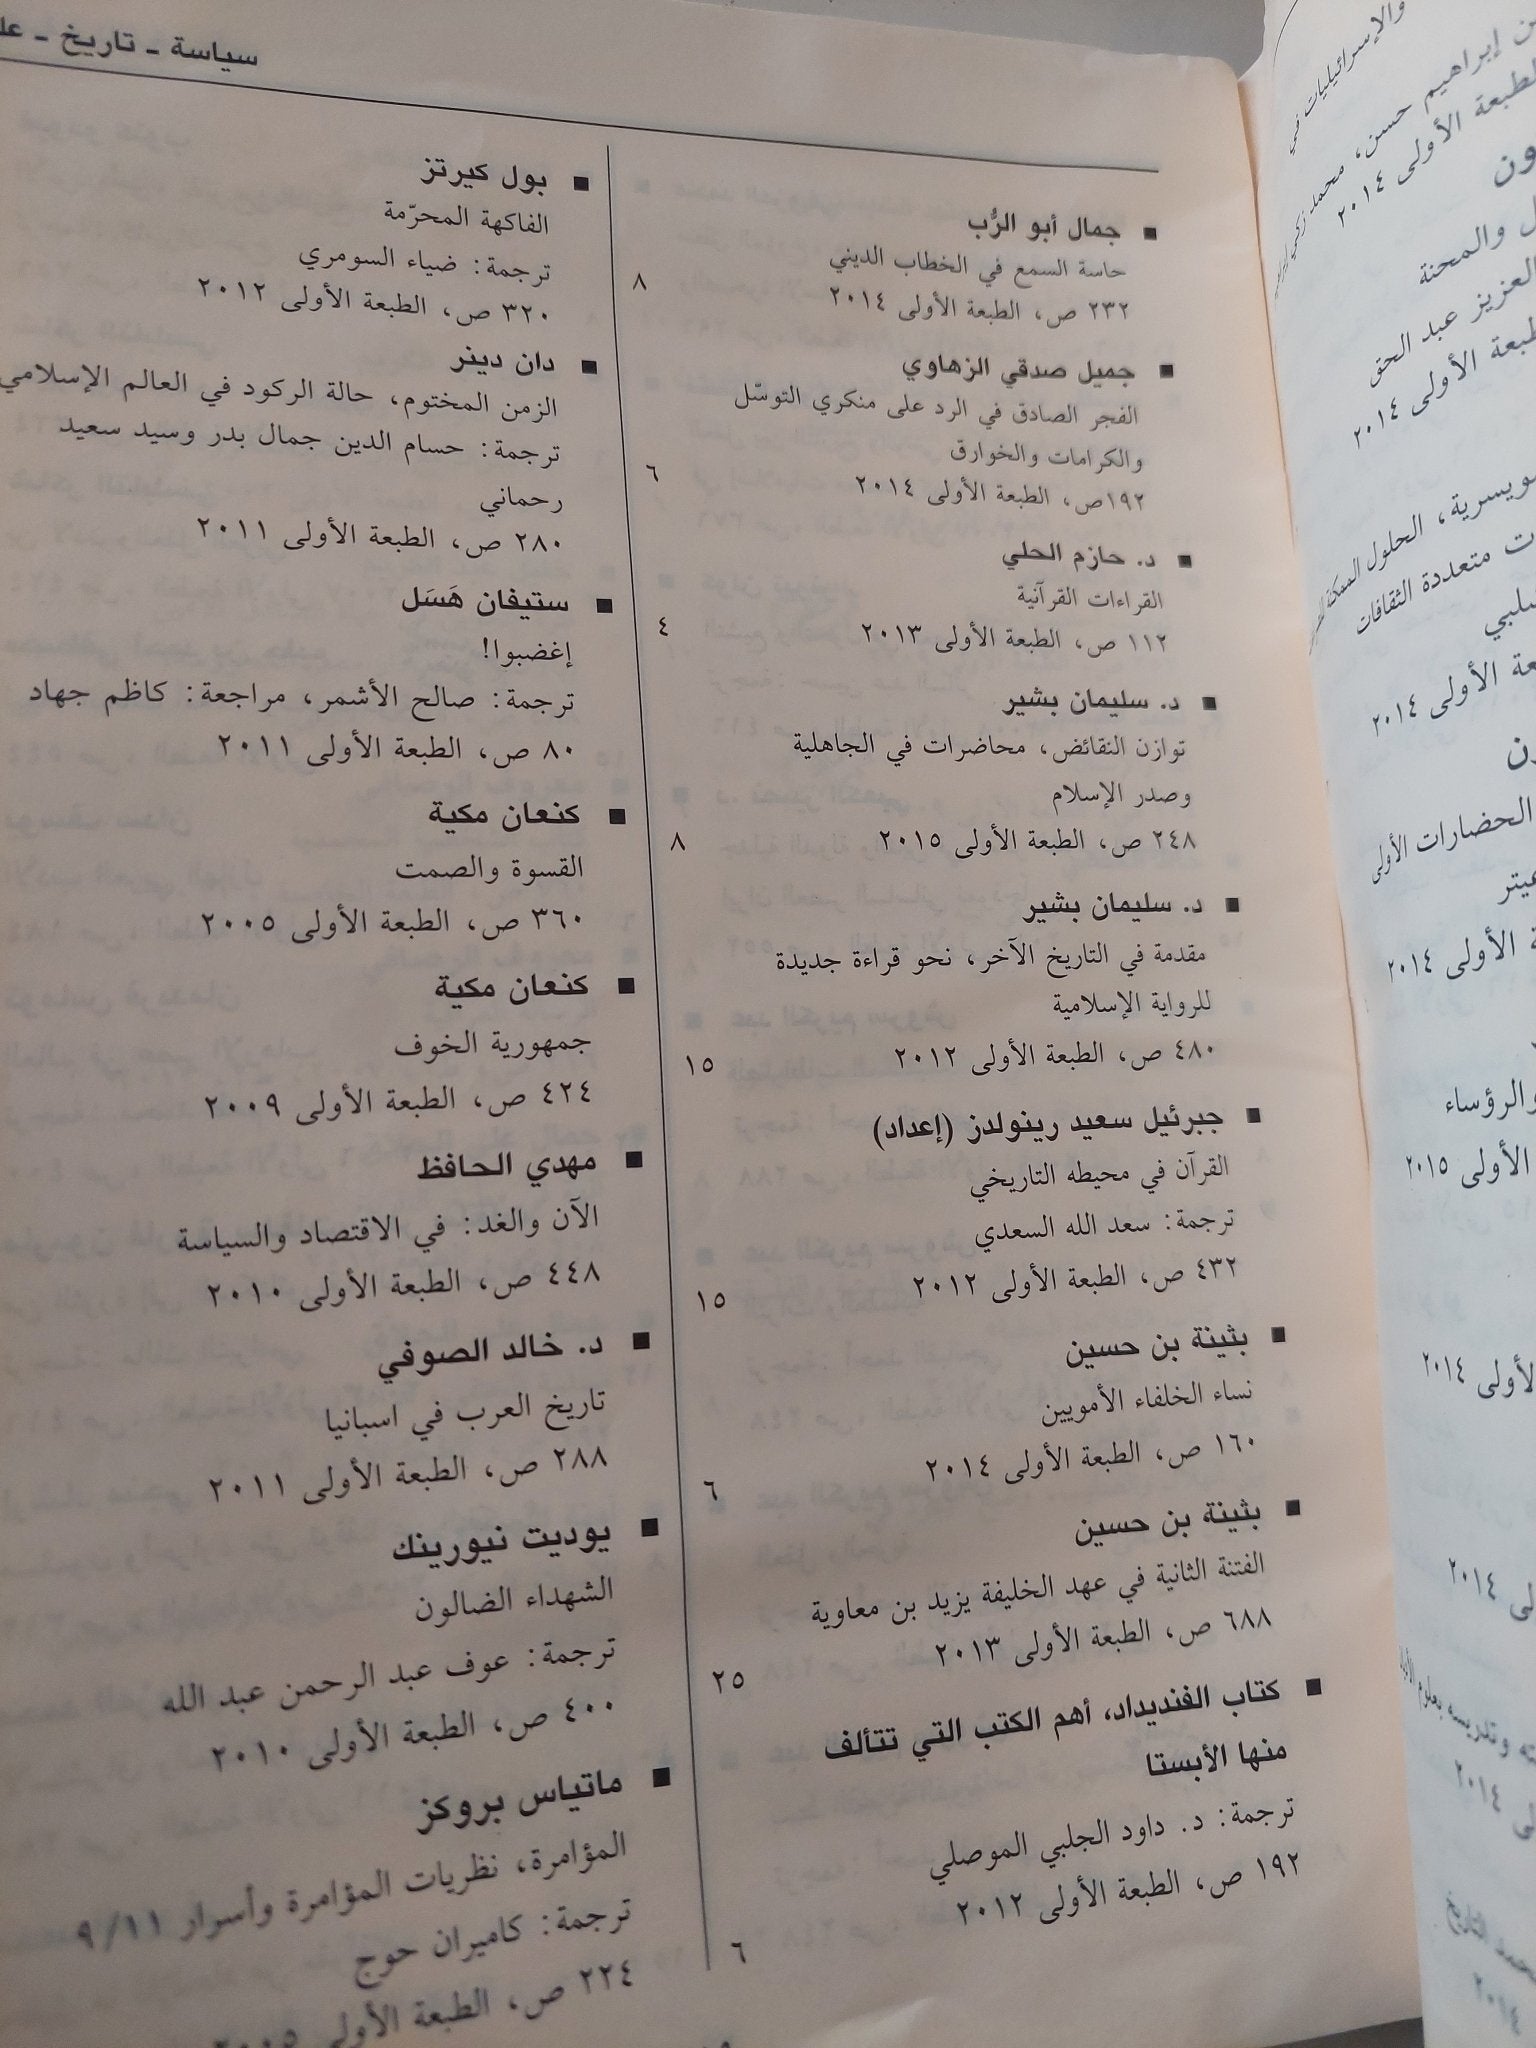 سياسة - تاريخ -
■ جمال أبو الرُّب
حاسة السمع في الخطاب الديني
٢٣٢ ص، الطبعة الأولى ٢٠١٤ ٨
■ جميل صدقي الزهاوي
الفجر الصادق في الرد على منكري التوسّل
والكرامات والخوارق
١٩٢ص، الطبعة الأولى ٢٠١٤ ٦
■ د. حازم الحلي
القراءات القرآنية
١١٢ ص، الطبعة الأولى ٢٠١٣ ٤
■ د. سليمان بشير
توازن النقائض، محاضرات في الجاهلية
وصدر الإسلام
٢٤٨ ص، الطبعة الأولى ٢٠١٥ ٨
■ د. سليمان بشير
مقدمة في التاريخ الآخر، نحو قراءة جديدة
للرواية الإسلامية
٤٨٠ ص، الطبعة الأولى ٢٠١٢ ١٥
■ جبرئيل سعيد رينولدز (إعداد)
القرآن في محيطه التاريخي
ترجمة: سعد الله السعدي
٤٣٢ ص، الطبعة الأولى ٢٠١٢ ١٥
■ بثينة بن حسين
نساء الخلفاء الأمويين
١٦٠ ص، الطبعة الأولى ٢٠١٤ ٦
■ بثينة بن حسين
الفتنة الثانية في عهد الخليفة يزيد بن معاوية
٦٨٨ ص، الطبعة الأولى ٢٠١٣ ٢٥
■ كتاب الفنديداد، أهم الكتب التي تتألف
منها الأبستا
ترجمة: د. داود الجلبي الموصلي
١٩٢ ص، الطبعة الأولى ٢٠١٢ ٦
■ بول كيرتز
الفاكهة المحرّمة
ترجمة: ضياء السومري
٣٢٠ ص، الطبعة الأولى ٢٠١٢
■ دان دينر
الزمن المختوم، حالة الركود في العالم الإسلامي
ترجمة: حسام الدين جمال بدر وسيد سعيد
رحماني
٢٨٠ ص، الطبعة الأولى ٢٠١١
■ ستيفان هَسَل
إغضبوا!
ترجمة: صالح الأشمر، مراجعة: كاظم جهاد
٨٠ ص، الطبعة الأولى ٢٠١١
■ كنعان مكية
القسوة والصمت
٣٦٠ ص، الطبعة الأولى ٢٠٠٥
■ كنعان مكية
جمهورية الخوف
٤٢٤ ص، الطبعة الأولى ٢٠٠٩
■ مهدي الحافظ
الآن والغد: في الاقتصاد والسياسة
٤٤٨ ص، الطبعة الأولى ٢٠١٠
■ د. خالد الصوفي
تاريخ العرب في اسبانيا
٢٨٨ ص، الطبعة الأولى ٢٠١١
■ يوديت نيورينك
الشهداء الضالون
ترجمة: عوف عبد الرحمن عبد الله
٤٠٠ ص، الطبعة الأولى ٢٠١٠
■ ماتياس بروكز
المؤامرة، نظريات المؤامرة وأسرار ٩/١١
ترجمة: كاميران حوج
٢٢٤ ص، الطبعة الأولى ٢٠٠٥
والإسرائيليات في
إبراهيم حسن، محمد زكي
الطبعة الأولى ٢٠١٤
والمحنة
العزيز عبد الحق
الأولى ٢٠١٤
الحلول الممكنة
متعددة الثقافات
الأولى ٢٠١٤
الحضارات الأولى
الأولى ٢٠١٤
والرؤساء
الأولى ٢٠١٥
الأولى ٢٠١٤
٢٠١٤
٢٠١٤